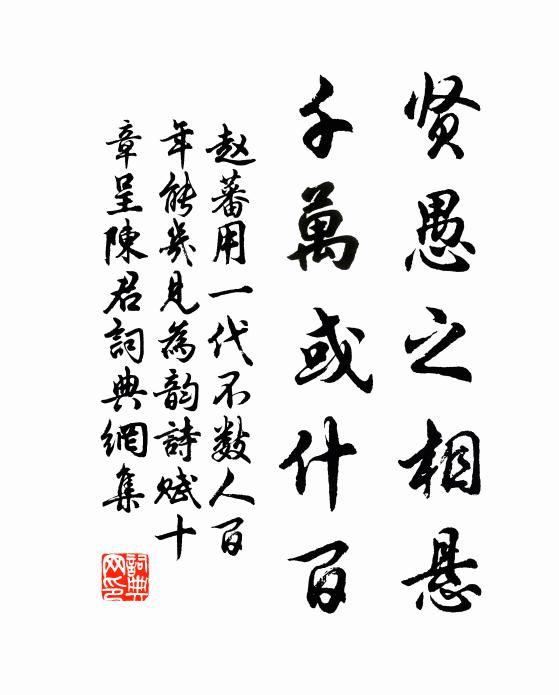 贤愚之相悬
千萬或什百
赵蕃用一代不数人百
年能幾見為韵詩赋十
章呈陳君詞典網集
詞典
网印